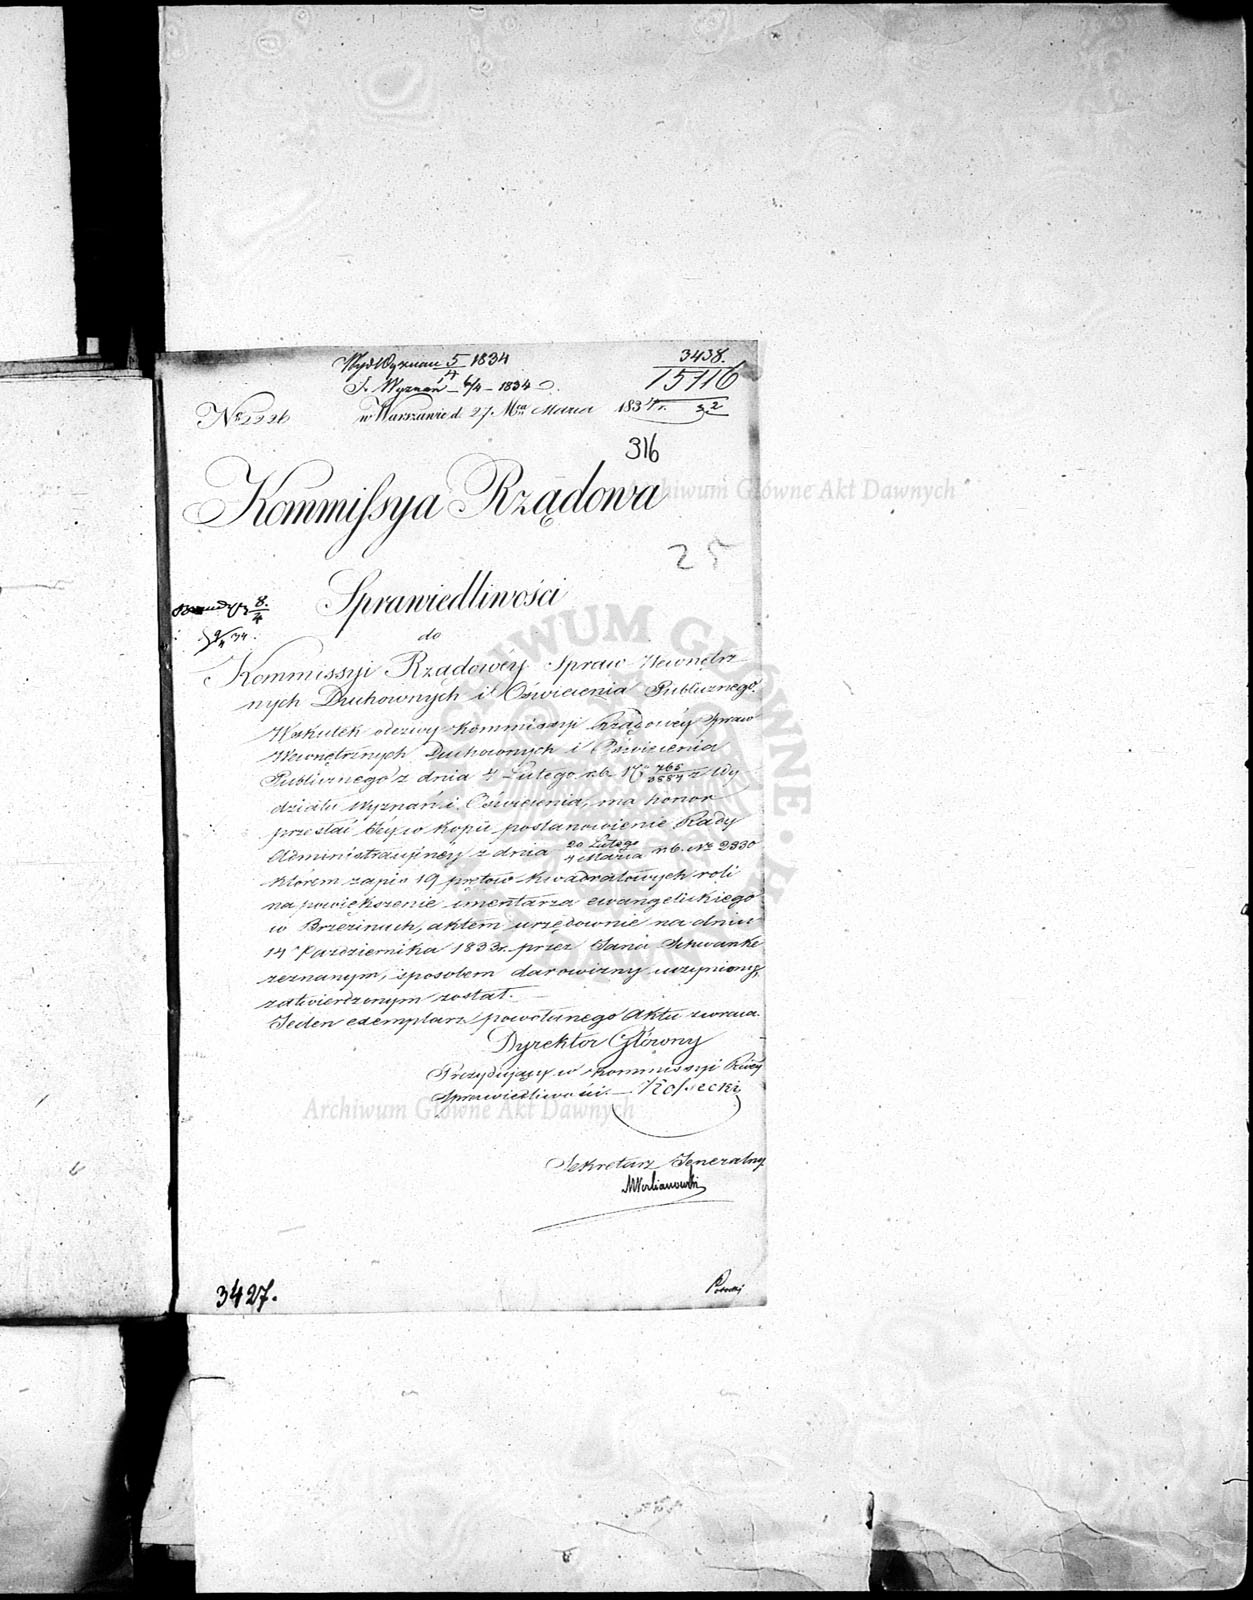 Wydł Wyznań 5/4 1834
3438.
S. Wyznań 6/4 - 1834
15116
32
No 2226
w Warszawie d. 27. Mca Marca 1834 r.
316
Kommissya Rządowa
25
Sprawiedliwości
8/4
9/4 34.
do
Kommissyi Rządowéy Spraw Wewnętrz
nych Duchownych i Oświecenia Publicznego.
Wskutek odezwy Kommissyi Rządowéy Spraw
Wewnętrznych Duchownych i Oświecenia
Publicznego z dnia Lutego r.b. No 765/3884 z Wy
działu Wyznań i Oświecenia, ma honor
przesłać Jéy w kopii postanowienie Rady
Administracyjnéy z dnia 20 Lutego/4 Marca r.b. No 2330
którem zapis 19 prętów kwadratowych roli
na powiększenie cmentarza ewangelickiego
w Brzezinach, aktem urzędownie na dniu
14 Października 1833 r. przez Jana Schwanke
zeznanym, sposobem darowizny uczyniony,
zatwierdzonym został.
Jeden exemplarz powołanego Aktu zwraca.
Dyrektor Główny
Prezydujący w Kommissyi Rząéy
Sprawiedliwości. Kossecki
Sekretarz Jeneralny
3427.
Archiwum Główne Akt Dawnych
Archiwum Główne Akt Dawnych
ARCHIWUM GŁÓWNE AKT DAWNYCH